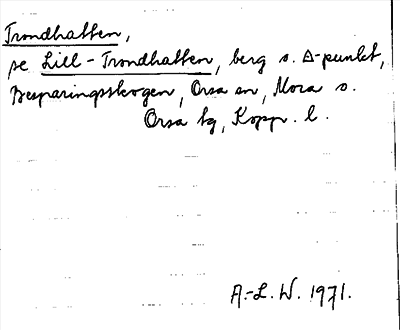 Trondhatten,
se Lill-Trondhatten, berg o. Δ-punkt,
Besparingsskogen, Orsa sn, Mora o.
Orsa tg, Kopp. l.
A.-L. W. 1971.